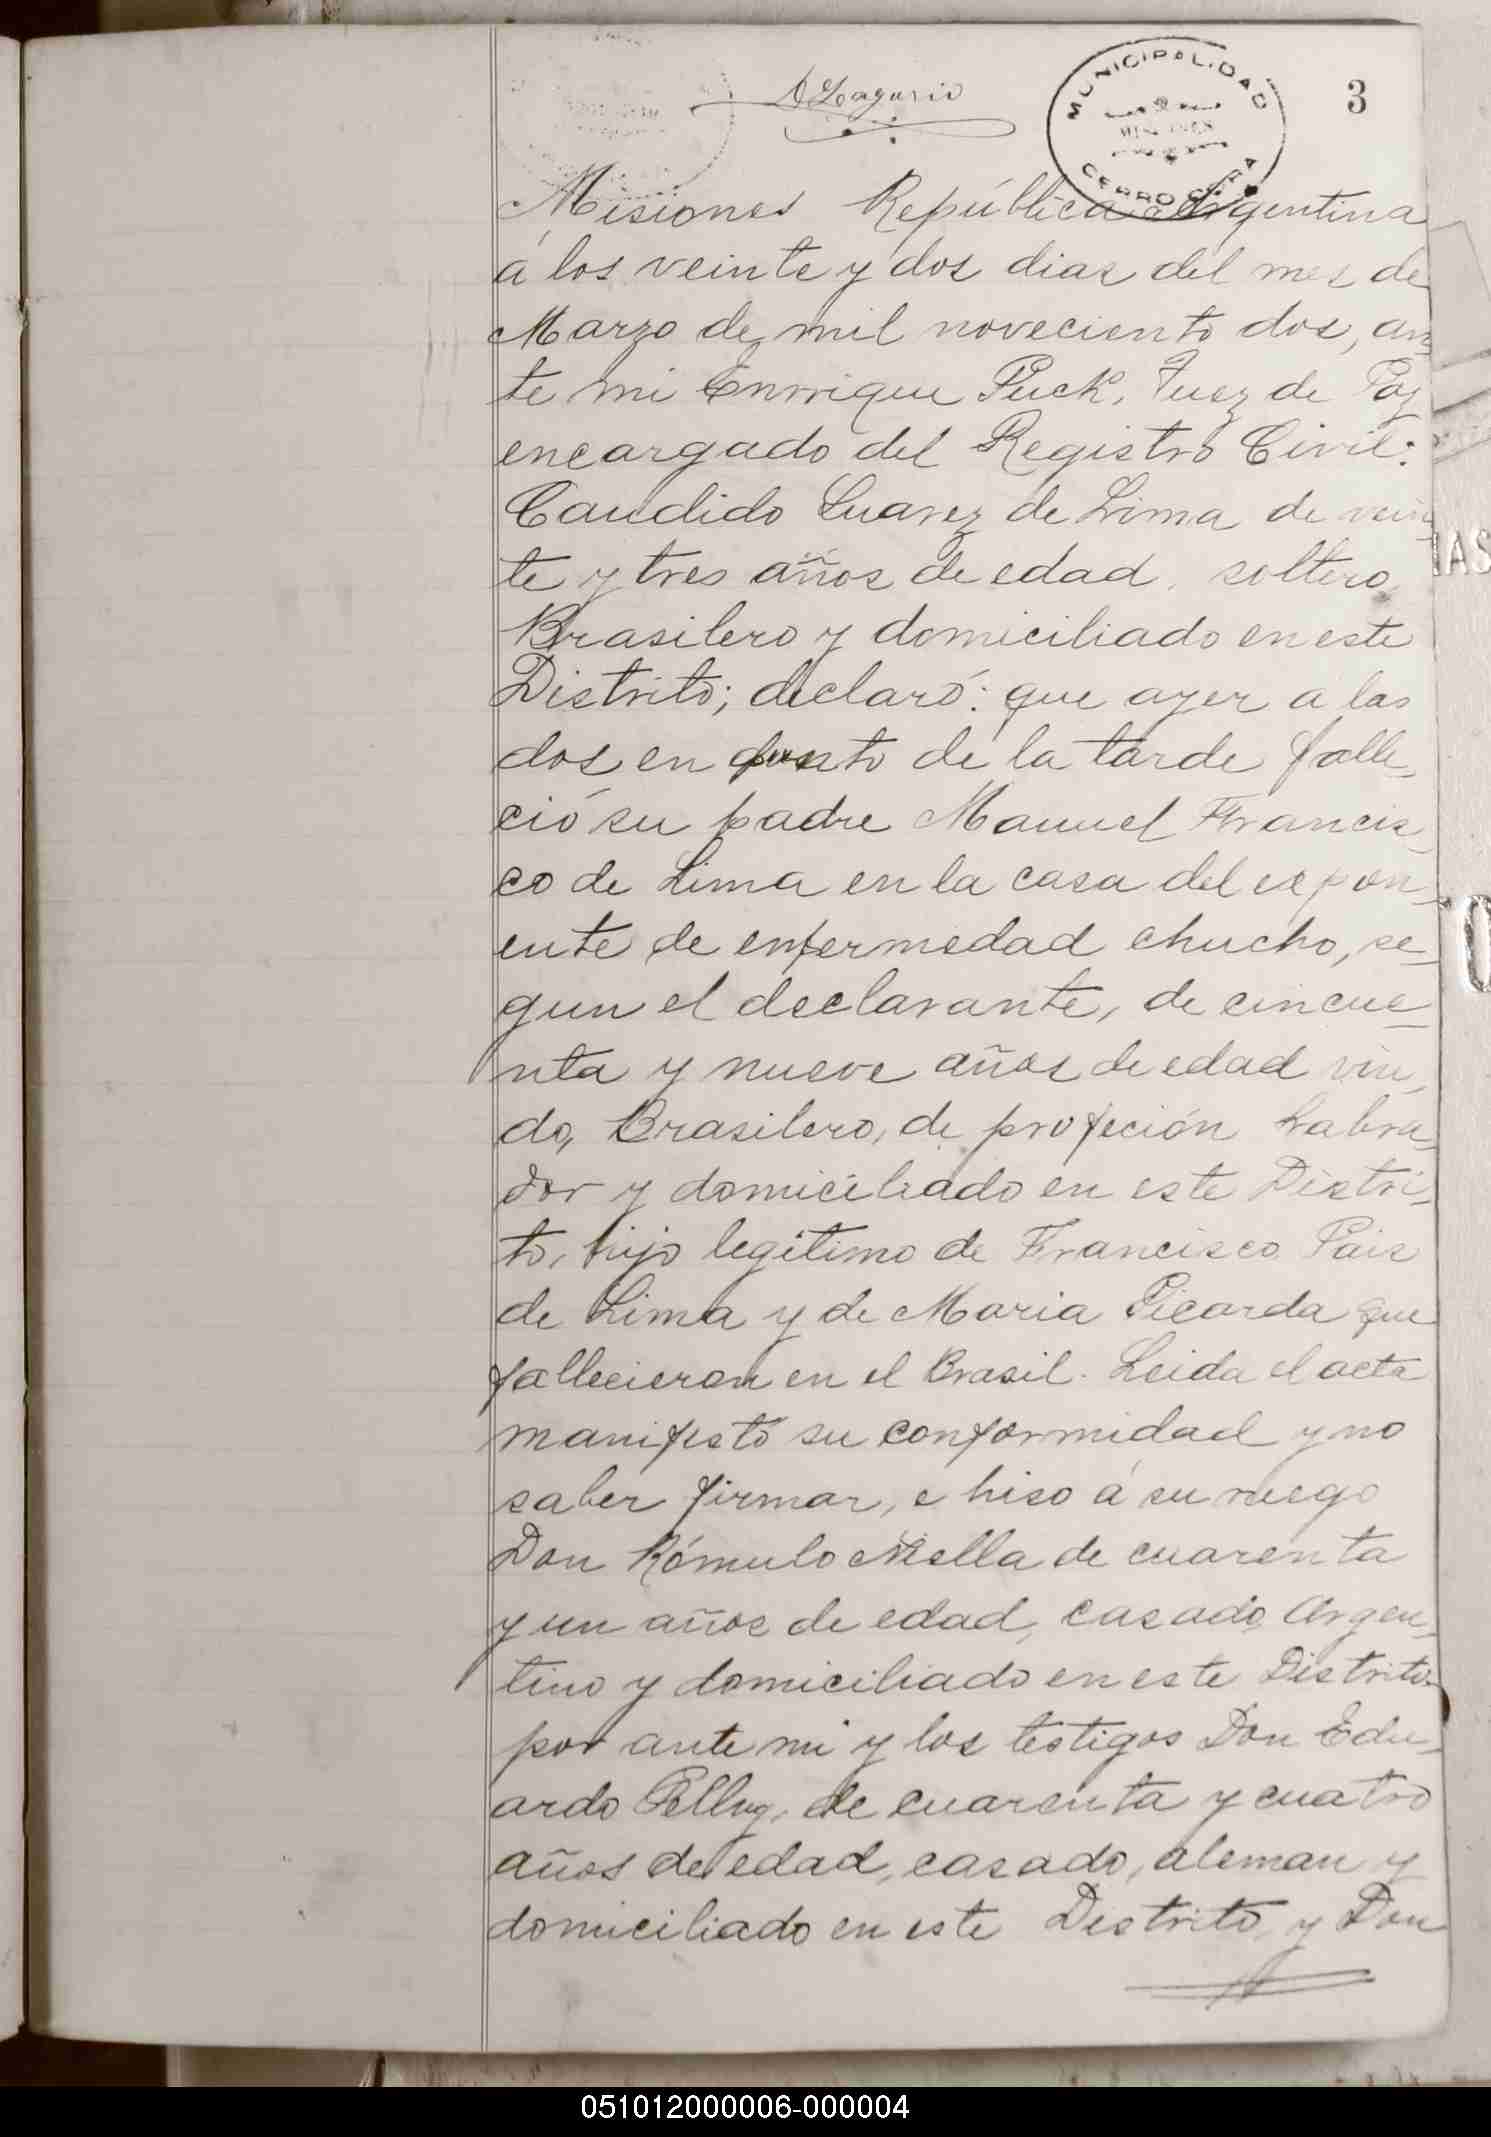 D Lagurio
MUNICIPALIDAD
MISIONES
CERRO CORA
3
Misiones República Argentina
á los veinte y dos dias del mes de
Marzo de mil noveciento dos, an
te mi Enrrique Puck, Juez de Paz
encargado del Registro Civil:
Candido Suarez de Lima de vein
te y tres años de edad, soltero,
Brasilero y domiciliado en este
Distrito; declaró: que ayer a las
dos en punto de la tarde falle,
ció su padre Manuel Francis,
co de Lima en la casa del expon,
ente de enfermedad chucho, se-
gun el declarante, de cincue-
nta y nueve años de edad viu,
do, Brasilero, de profeción Labra,
dor y domiciliado en este Distri,
to, hijo legítimo de Francisco Pais
de Lima y de Maria Picarda que
fallecieron en el Brasil. Leida el acta
manifestó su conformidad y no
saber firmar, e hiso á su ruego
Don Rómulo Mella de cuarenta
y un años de edad, casado, Argen,
tino y domiciliado en este Distrito
por ante mi y los testigos Don Edu,
ardo Pelluz, de cuarenta y cuatro
años de edad, casado, aleman y
domiciliado en este Distrito, y Don
051012000006-000004